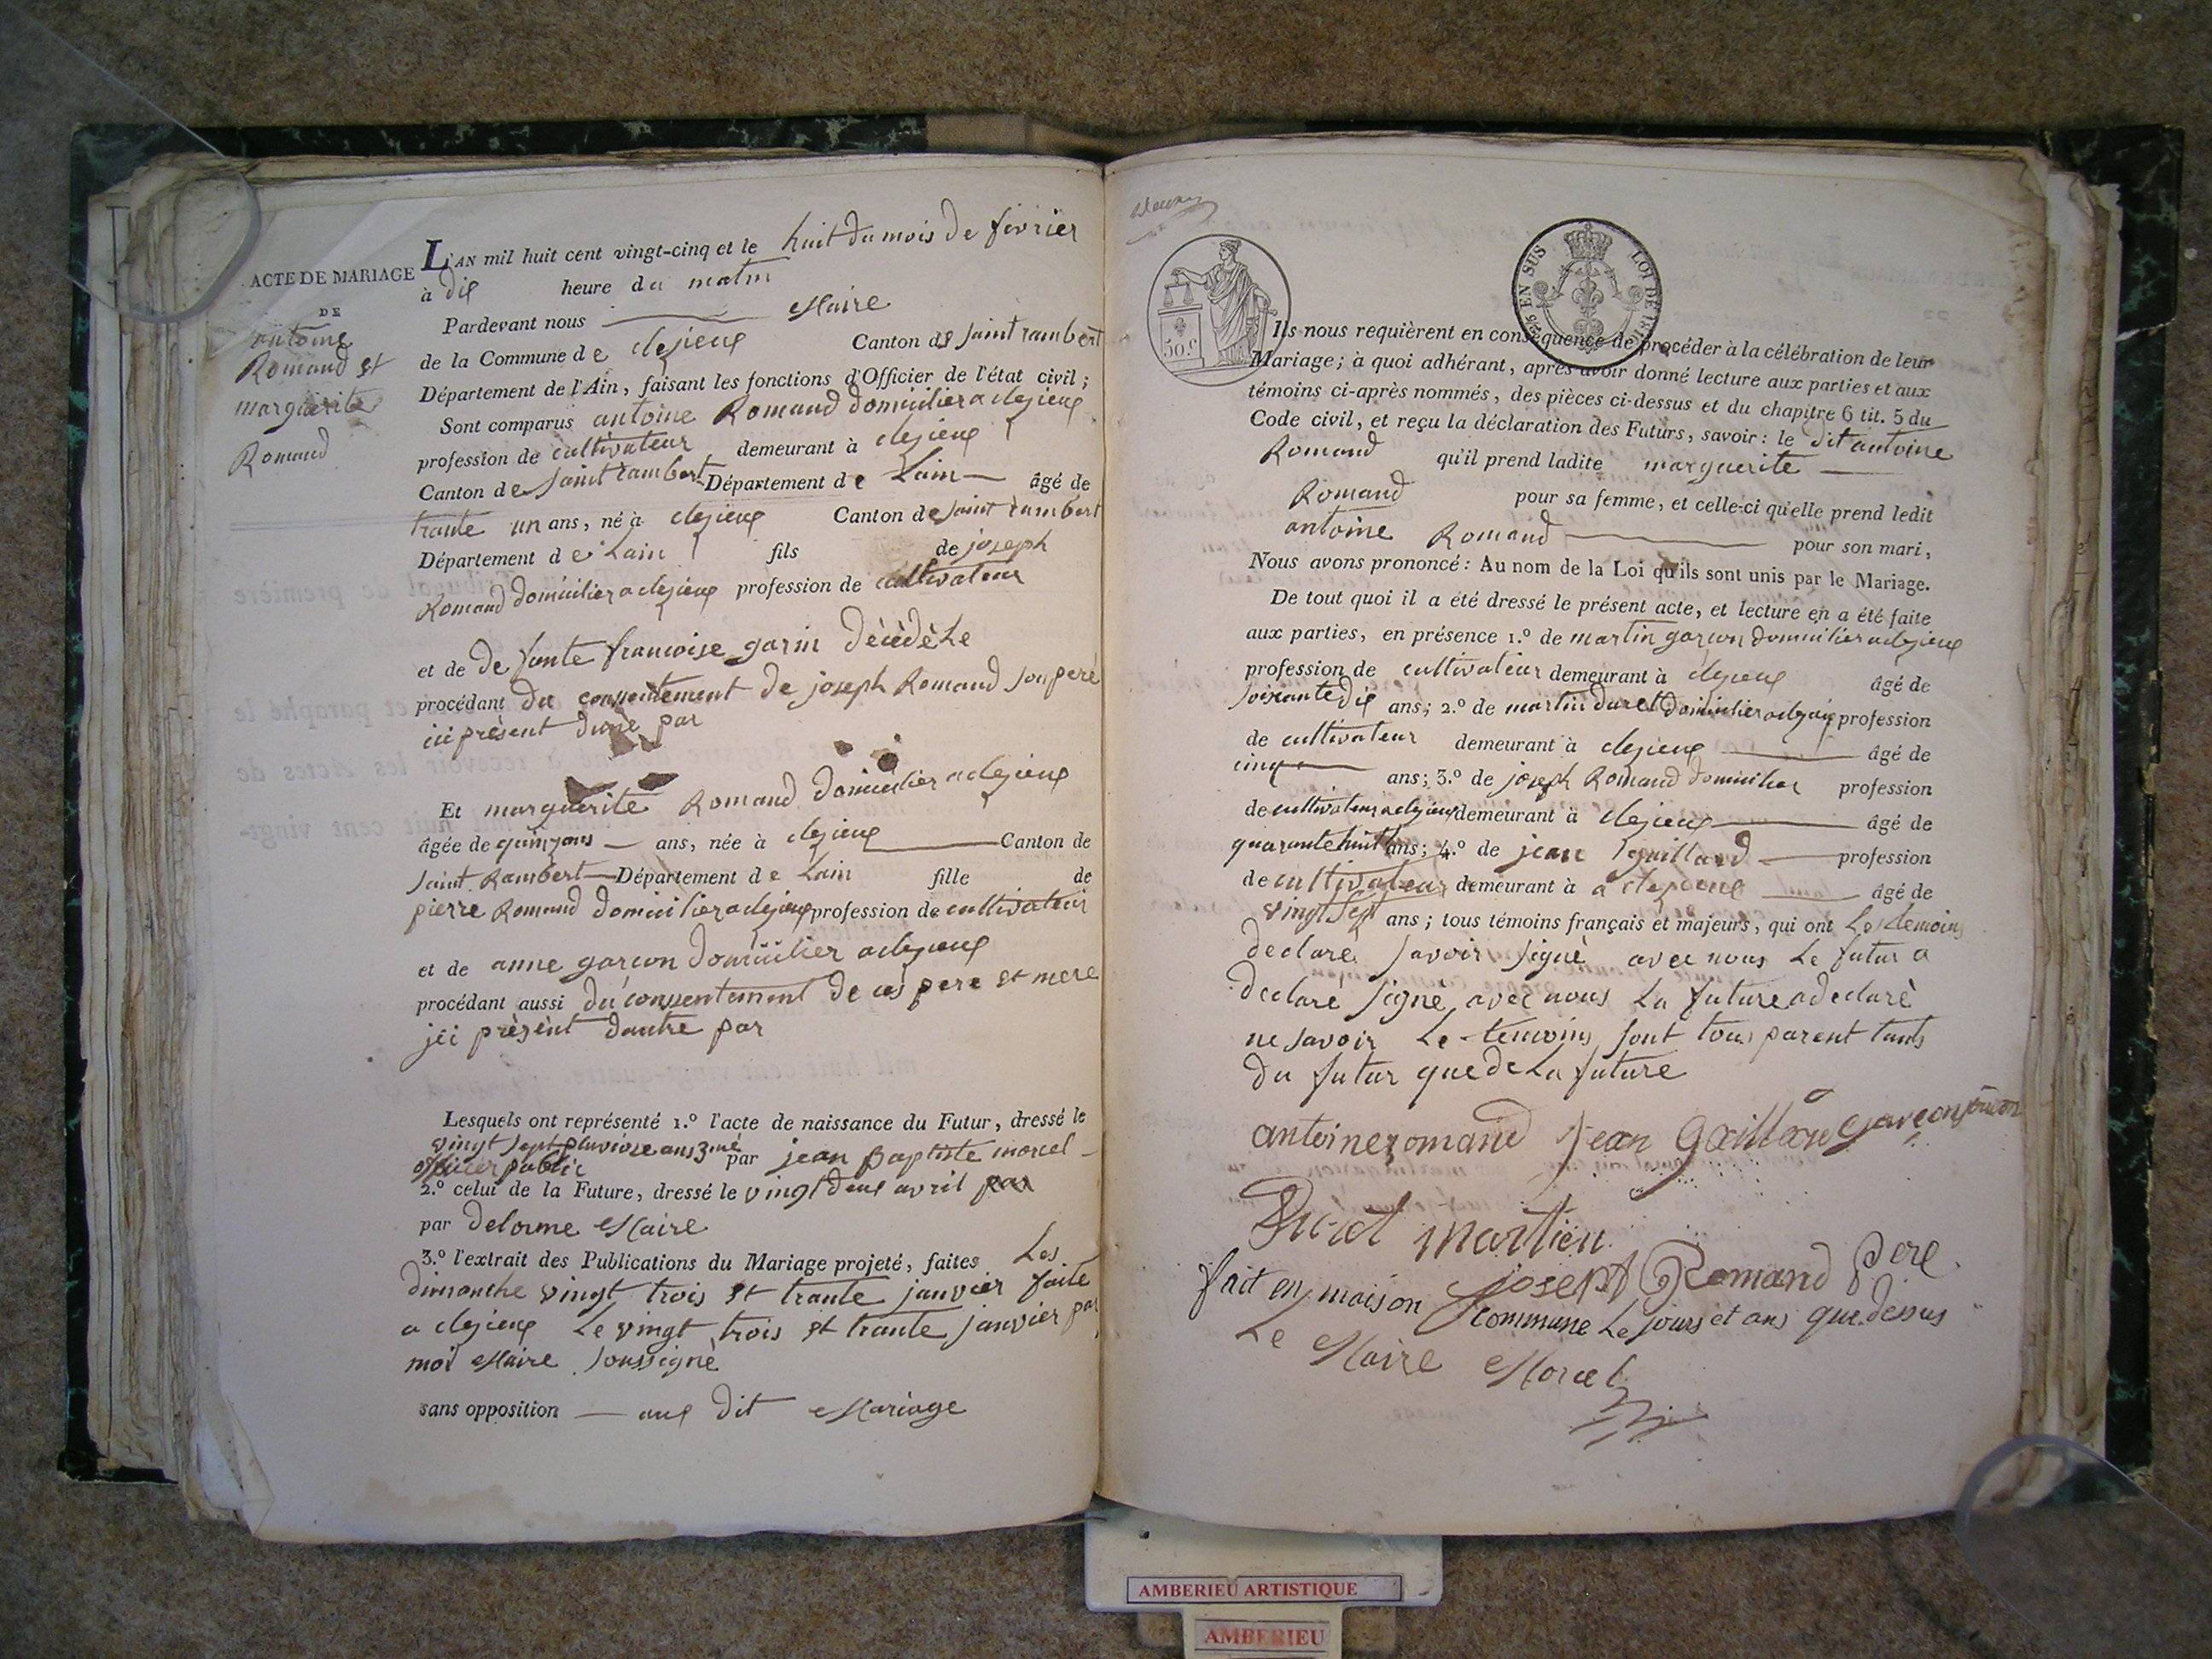 ACTE DE MARIAGE
DE
antoine
Romand et
marguerite
Romand
L'AN mil huit cent vingt-cinq et le huit du mois de fevrier
à dix heure du matin
Pardevant nous Maire
de la Commune de clezieux Canton de Saint rambert
Département de l'Ain, faisant les fonctions d'Officier de l'état civil;
Sont comparus antoine Romand domicilier a clezieux
profession de cultivateur demeurant à clezieux
Canton de Saint rambert Département de Lain âgé de
trante un ans, né à clezieux Canton de Saint rambert
Département de Lain fils de joseph
Romand domicilier a clezieux profession de cultivateur
et de De funte francoise garin Décèdèhe
procédant du consentement de joseph Romand son pere
ici présent dune par
Et marguerite Romand domicilier a clezieux
âgée de ans, née à clezieux Canton de
Saint Rambert Département de Lain fille de
pierre Romand domicilier a clezieux profession de cultivateur
et de anne garcon domicilier a clezieux
procédant aussi du consentement de ces pere et mere
jci présent dautre par
Lesquels ont représenté 1.º l'acte de naissance du Futur, dressé le
vingt sept pluviose ans 3me par jean Baptiste morcel
officier public
2.º celui de la Future, dressé le vingt deux avril par
par delorme Maire
3.º l'extrait des Publications du Mariage projeté, faites Les
dimanche vingt trois et trante janvier faite
a clezieux Le vingt trois et trante janvier par
moi Maire soussignè
sans opposition aux dit Mariage
50.c
25 EN SUS LOI DE 18
Ils nous requièrent en conséquence de procéder à la célébration de leur
Mariage; à quoi adhérant, après avoir donné lecture aux parties et aux
témoins ci-après nommés, des pièces ci-dessus et du chapitre 6 tit. 5 du
Code civil, et reçu la déclaration des Futurs, savoir: le dit antoine
Romand qu'il prend ladite marguerite
Romand pour sa femme, et celle-ci qu'elle prend ledit
antoine Romand pour son mari,
Nous avons prononcé: Au nom de la Loi qu'ils sont unis par le Mariage.
De tout quoi il a été dressé le présent acte, et lecture en a été faite
aux parties, en présence 1.º de martin garcon domicilier a clezieux
profession de cultivateur demeurant à clezieux âgé de
soixante dix ans; 2.º de martin duret domicilier a clezieux profession
de cultivateur demeurant à clezieux âgé de
cinq ans; 3.º de joseph Romand domicilier profession
de cultivateur a clezieux demeurant à clezieux âgé de
quarante huit ans; 4.º de jean gaillard profession
de cultivateur demeurant à a clezieux âgé de
vingt sept ans; tous témoins français et majeurs, qui ont Les temoins
declaré savoir signè avec nous Le futur a
declaré signè avec nous La future a declarè
ne savoir Le temoins sont tous parent tants
du futur que de La future
antoine romand jean Gaillard garcon
Duret Martien
joseph Romand Pere
fait en maison commune Le jours et ans que dessus
Le Maire Morcel
AMBERIEU ARTISTIQUE
AMBERIEU